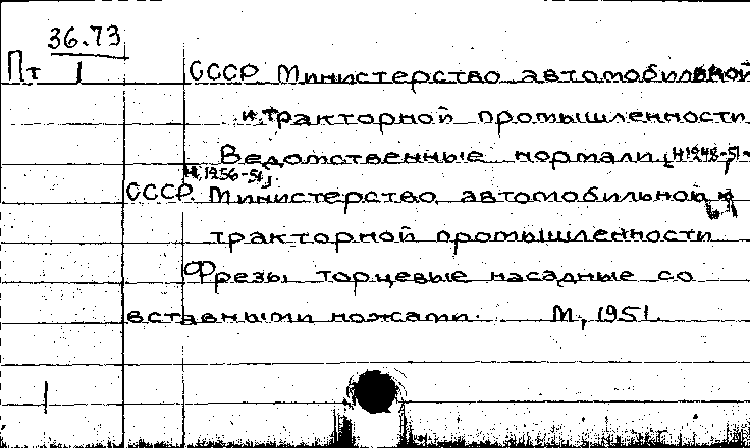 36.73
Пт 1
СССР Министерство автомобильной
и тракторной промышленности
Ведомственные нормали [Н1248-51-
Н.1256-51].
СССР. Министерство автомобильной и
тракторной промышленности
Фрезы торцевые насадные со
вставными ножами. М, 1951.
1